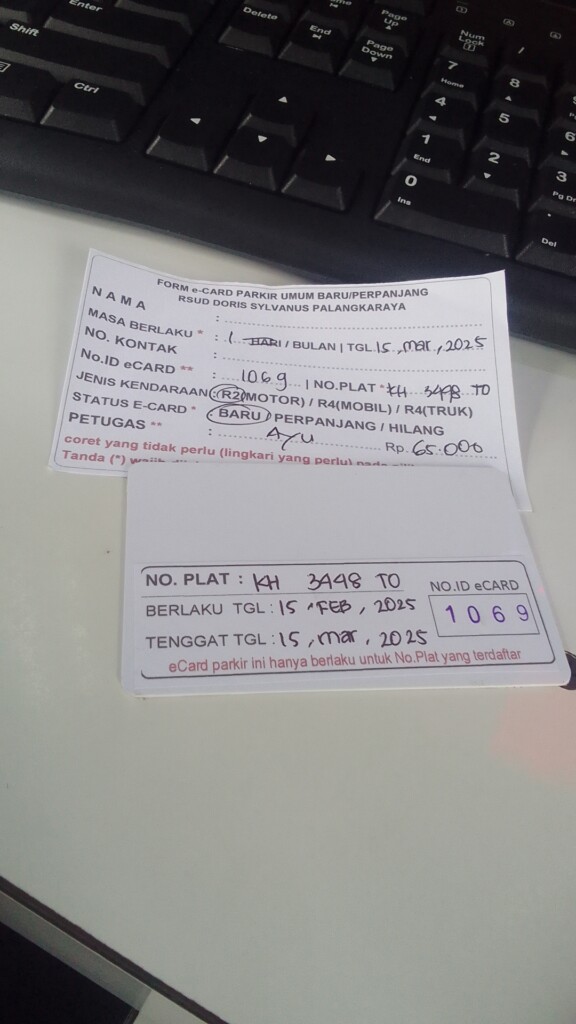 Enter
Shift
Ctrl
Delete
End
Page Up
Page Down
Num Lock
/
7 Home
8
4
5
6
1 End
2
3 Pg Dn
0 Ins
Del
FORM e-CARD PARKIR UMUM BARU/PERPANJANG
RSUD DORIS SYLVANUS PALANGKARAYA
NAMA :
MASA BERLAKU * : 1 HARI / BULAN | TGL 15, Mar, 2025
NO. KONTAK :
No.ID eCARD ** : 1069 | NO.PLAT * KH 3498 TO
JENIS KENDARAAN : R2(MOTOR) / R4(MOBIL) / R4(TRUK)
STATUS E-CARD * : BARU / PERPANJANG / HILANG
PETUGAS ** : AYU Rp. 65.000
coret yang tidak perlu (lingkari yang perlu)
Tanda (*)
NO. PLAT : KH 3448 TO
BERLAKU TGL : 15, FEB, 2025
TENGGAT TGL : 15, Mar, 2025
NO.ID eCARD
1069
eCard parkir ini hanya berlaku untuk No.Plat yang terdaftar